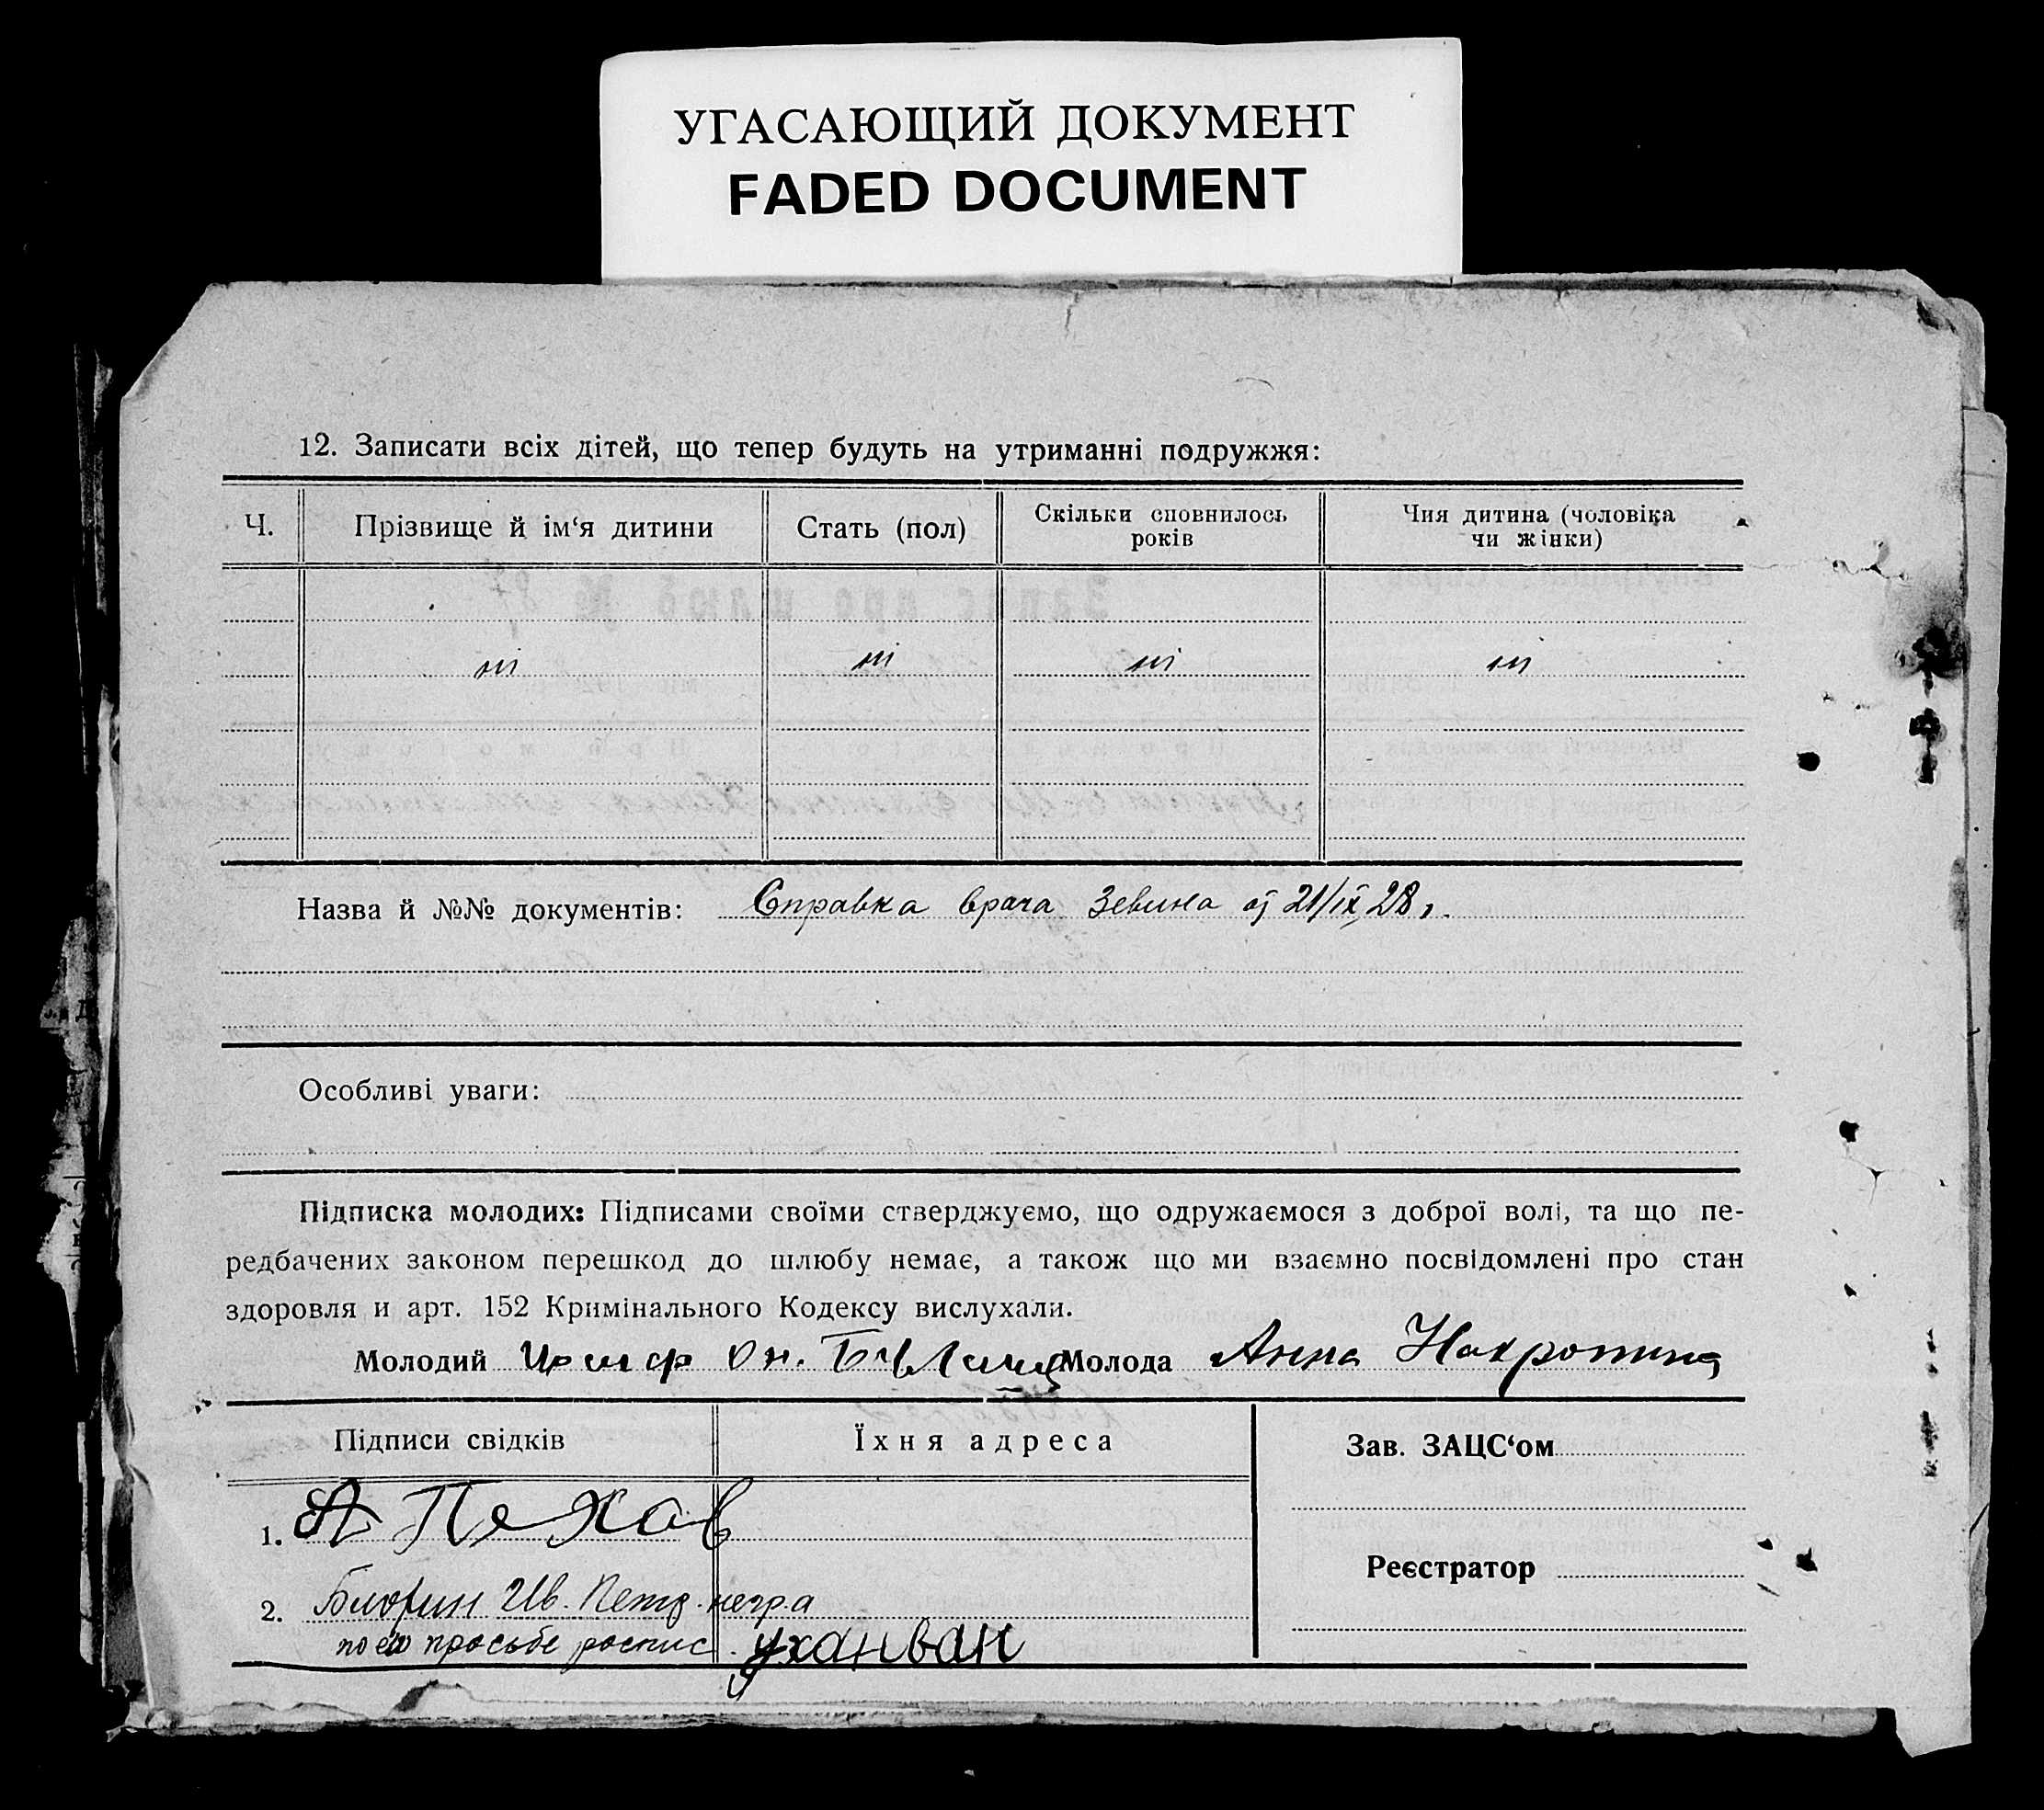 УГАСАЮЩИЙ ДОКУМЕНТ
FADED DOCUMENT
12. Записати всіх дітей, що тепер будуть на утриманні подружжя:
Ч. Прізвище й ім‘я дитини Стать (пол) Скільки сповнилось років Чия дитина (чоловіка чи жінки)
ні ні ні ні
Назва й №№ документів: Справка врача Зевина от 21/IX 28 г.
Особливі уваги:
Підписка молодих: Підписами своїми стверджуємо, що одружаємося з доброї волі, та що пе-
редбачених законом перешкод до шлюбу немає, а також що ми взаємно посвідомлені про стан
здоровля и арт. 152 Кримінального Кодексу вислухали.
Молодий Молода Анна
Підписи свідків Їхня адреса Зав. ЗАЦС‘ом
1. А Пехав
Реєстратор
2. Ив. Петр. негр.а
по его просьбе роспис.